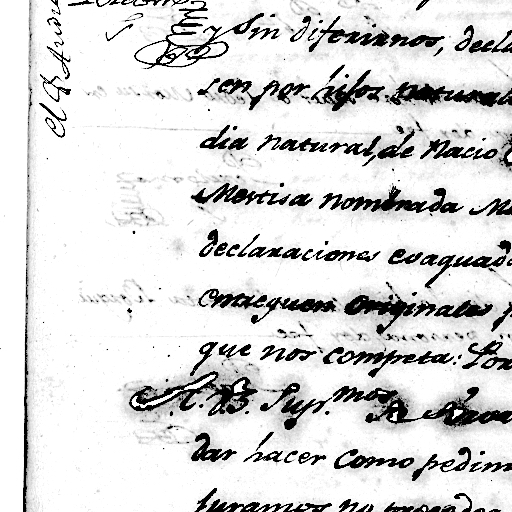 y sin diferirnos, decla
sen por hijos natural
dia natural, de Nacio
Mestisa nomenada Ma
declaraciones evaquada
entreguen originales p
que nos competa: Por
A. V. S. Sup.mos
dar hacer como pedim
juramos no proceder